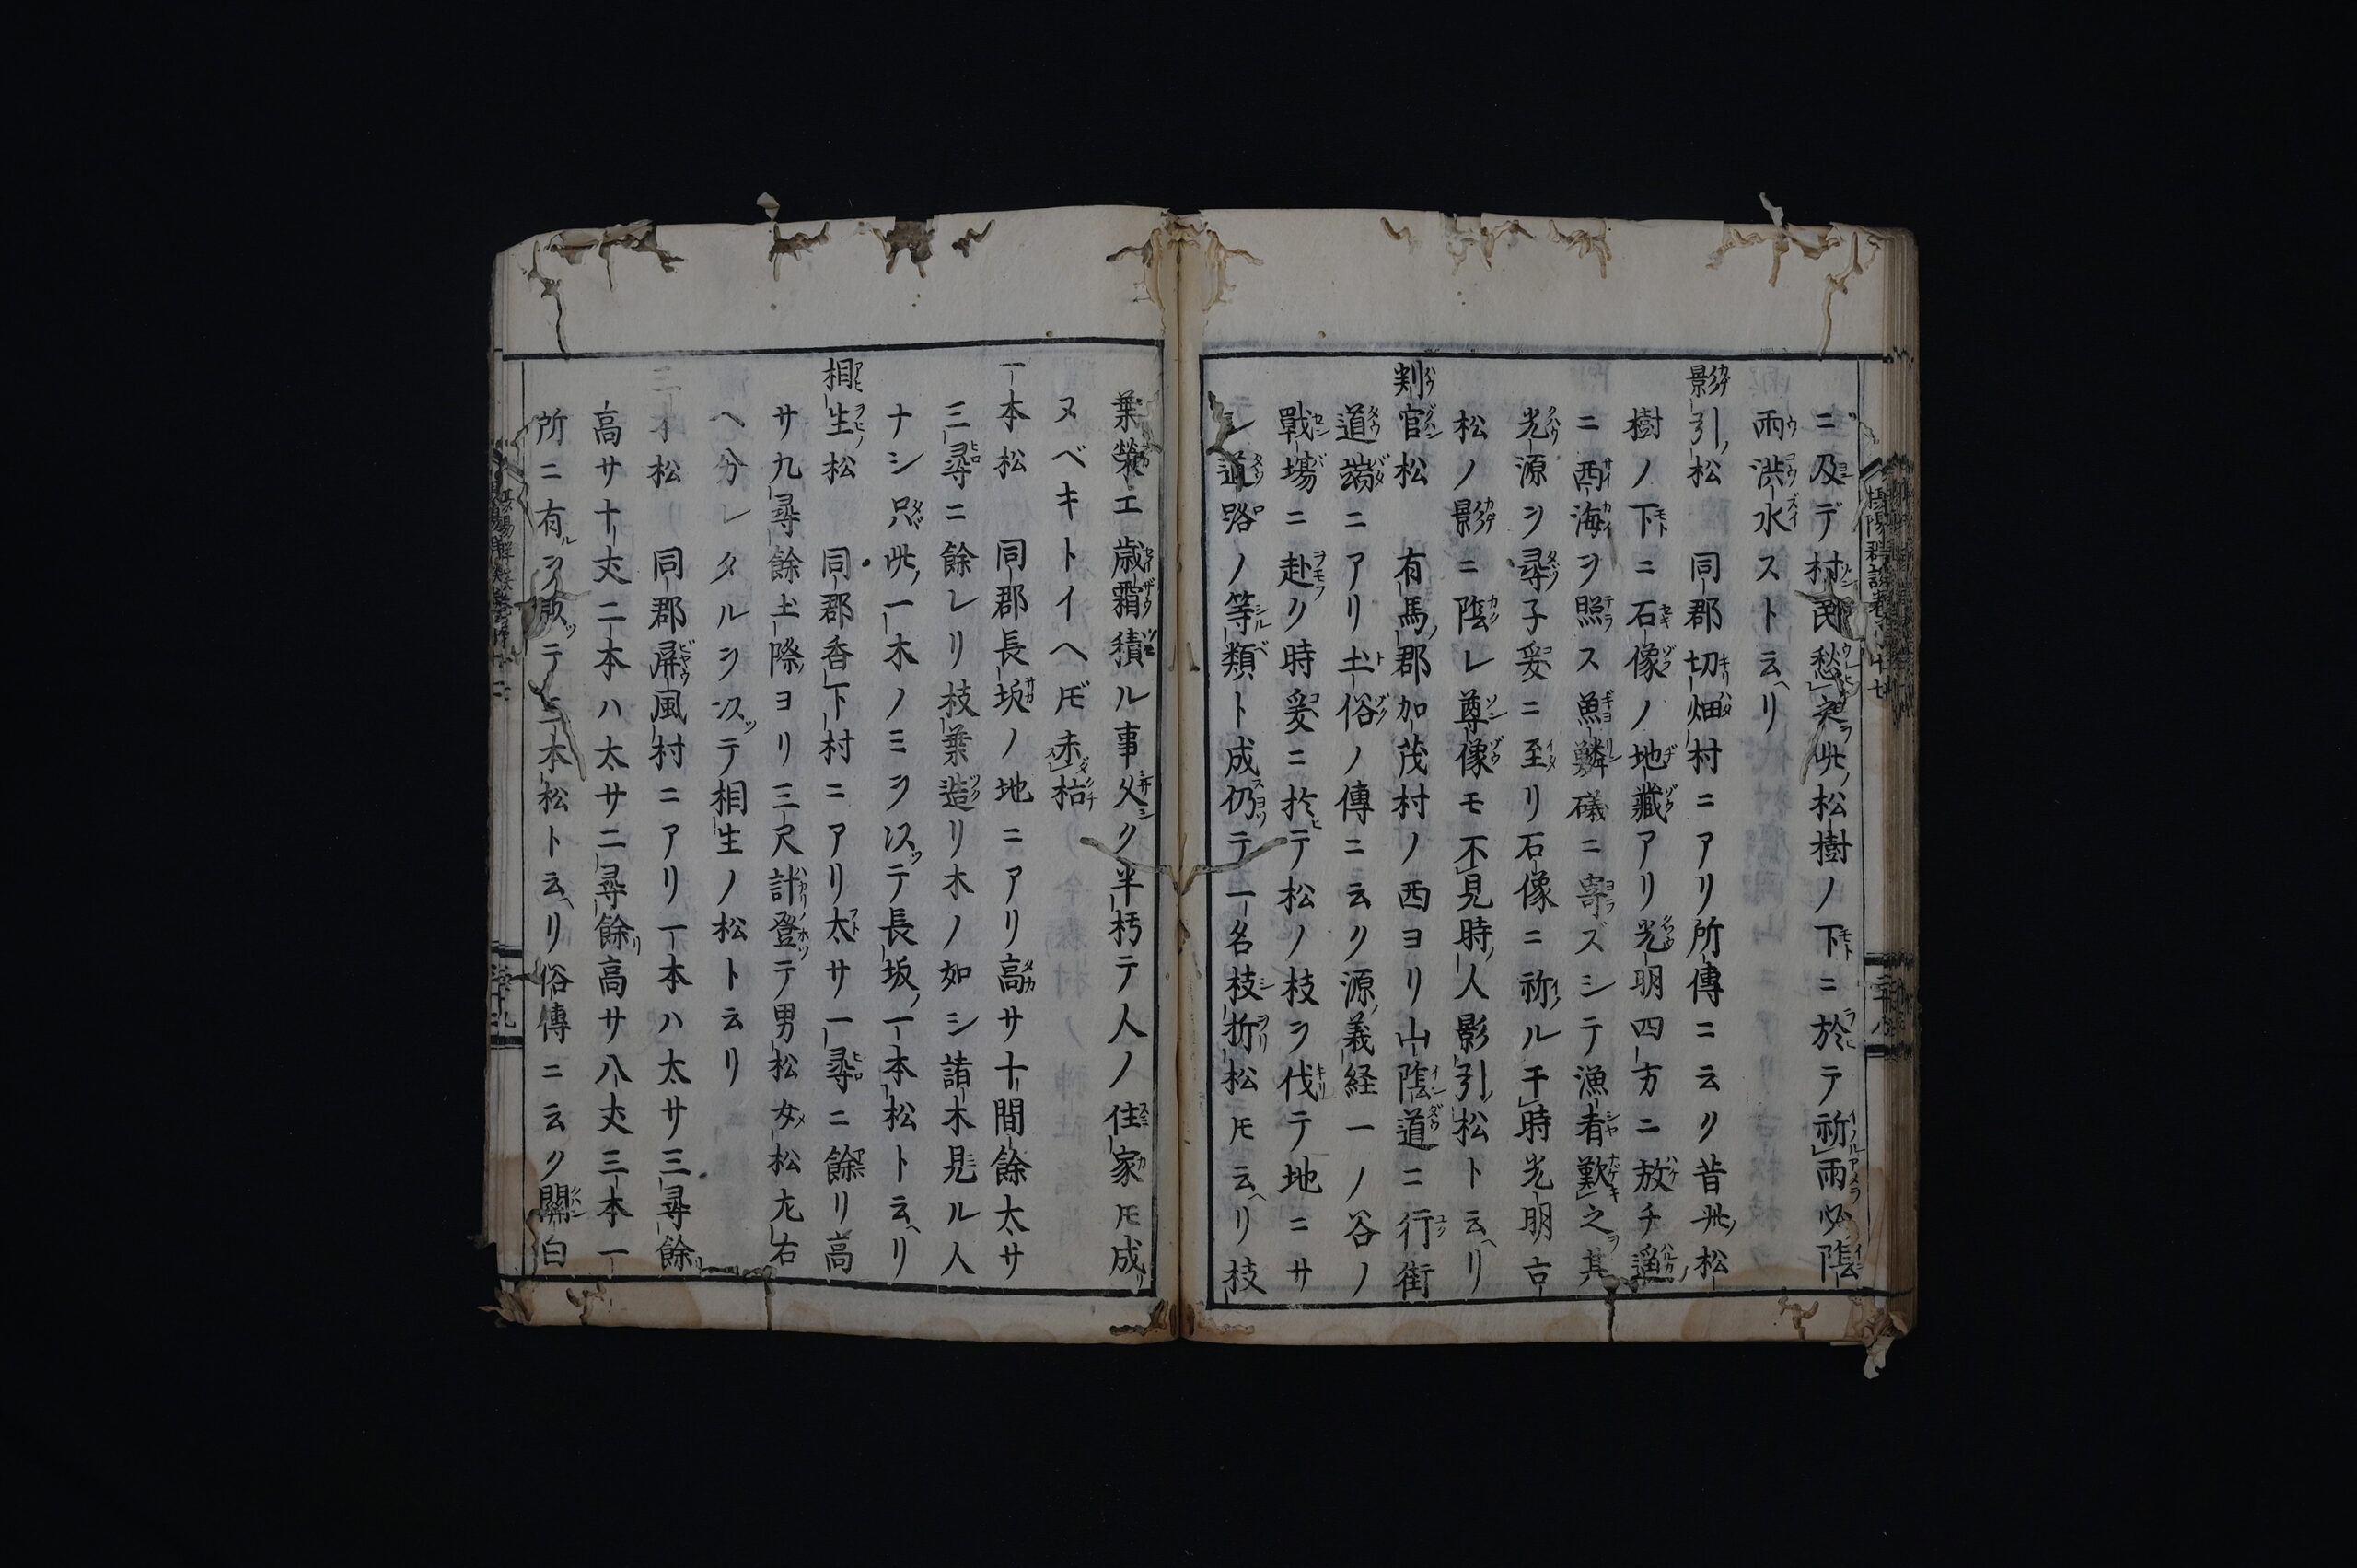 ニ及デ村民愁」之此ノ松樹ノ下ニ於テ祈」雨必陰
雨洪水ストエヘリ
影引ノ松　同郡切畑村ニアリ所傳ニ云ク昔此ノ松
樹ノ下ニ石像ノ地藏アリ光明四方ニ放チ遥ノ
ニ西海ヲ照ス魚鱗礒ニ寄ズシテ漁者歎」之其
光源ヲ尋子爰ニ至リ石像ニ祈ル于」時光明亡
松ノ影ニ陰レ尊像モ不」見時ノ人影引ノ松ト云ヘリ
判官松　有馬ノ郡加茂村ノ西ヨリ山陰道ニ行街
道端ニアリ土俗ノ傳ニ云ク源ノ義経一ノ谷ノ
戰塲ニ赴リ時爰ニ於テ松ノ枝ヲ伐テ地ニサ
シ道路ノ等類ト成仍テ一名枝折松モ云ヘリ枝
葉榮エ歳霜積ル事久ク半朽テ人ノ住家モ成リ
ヌベキトイヘ𪜈未」枯
一本松　同郡長坂ノ地ニアリ高サ十間餘太サ
三尋ニ餘レリ枝葉造リ木ノ如シ諸木見ル人
ナシ只此ノ一木ノミヲ以テ長坂ノ一本松ト云ヘリ
相生松　同郡香下村ニアリ太サ一尋ニ餘リ高
サ九尋餘土際ヨリ三尺計登テ男松女松左右
ヘ分レタルヲ以テ相生ノ松ト云リ
三本松　同郡屏風村ニアリ一本ハ太サ三尋餘
高サ十丈二本ハ太サ二尋餘リ高サ八丈三本一
所ニ有ルヲ以テ三本松ト云ヘリ俗傳ニ云ク關白
攝陽群談卷十七